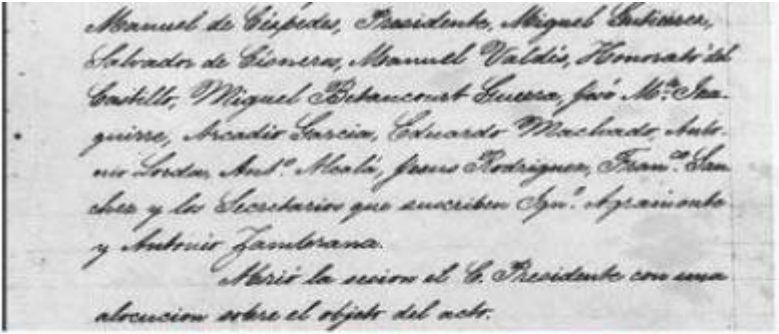 Manuel de Céspedes, Presidente, Miguel Gutierrez,
Salvador de Cisneros, Manuel Valdés, Honorato del
Castillo, Miguel Betancourt Guerra, José Mª. Iza-
guirre, Arcadio Garcia, Eduardo Machado, Anto-
nio Lorda, Antº. Alcalá, Jesus Rodriguez, Franco. San
chez y los Secretarios que suscriben Ignº. Agramonte
y Antonio Zambrana.
Abrió la sesion el C. Presidente con una
alocucion sobre el objeto del acto.